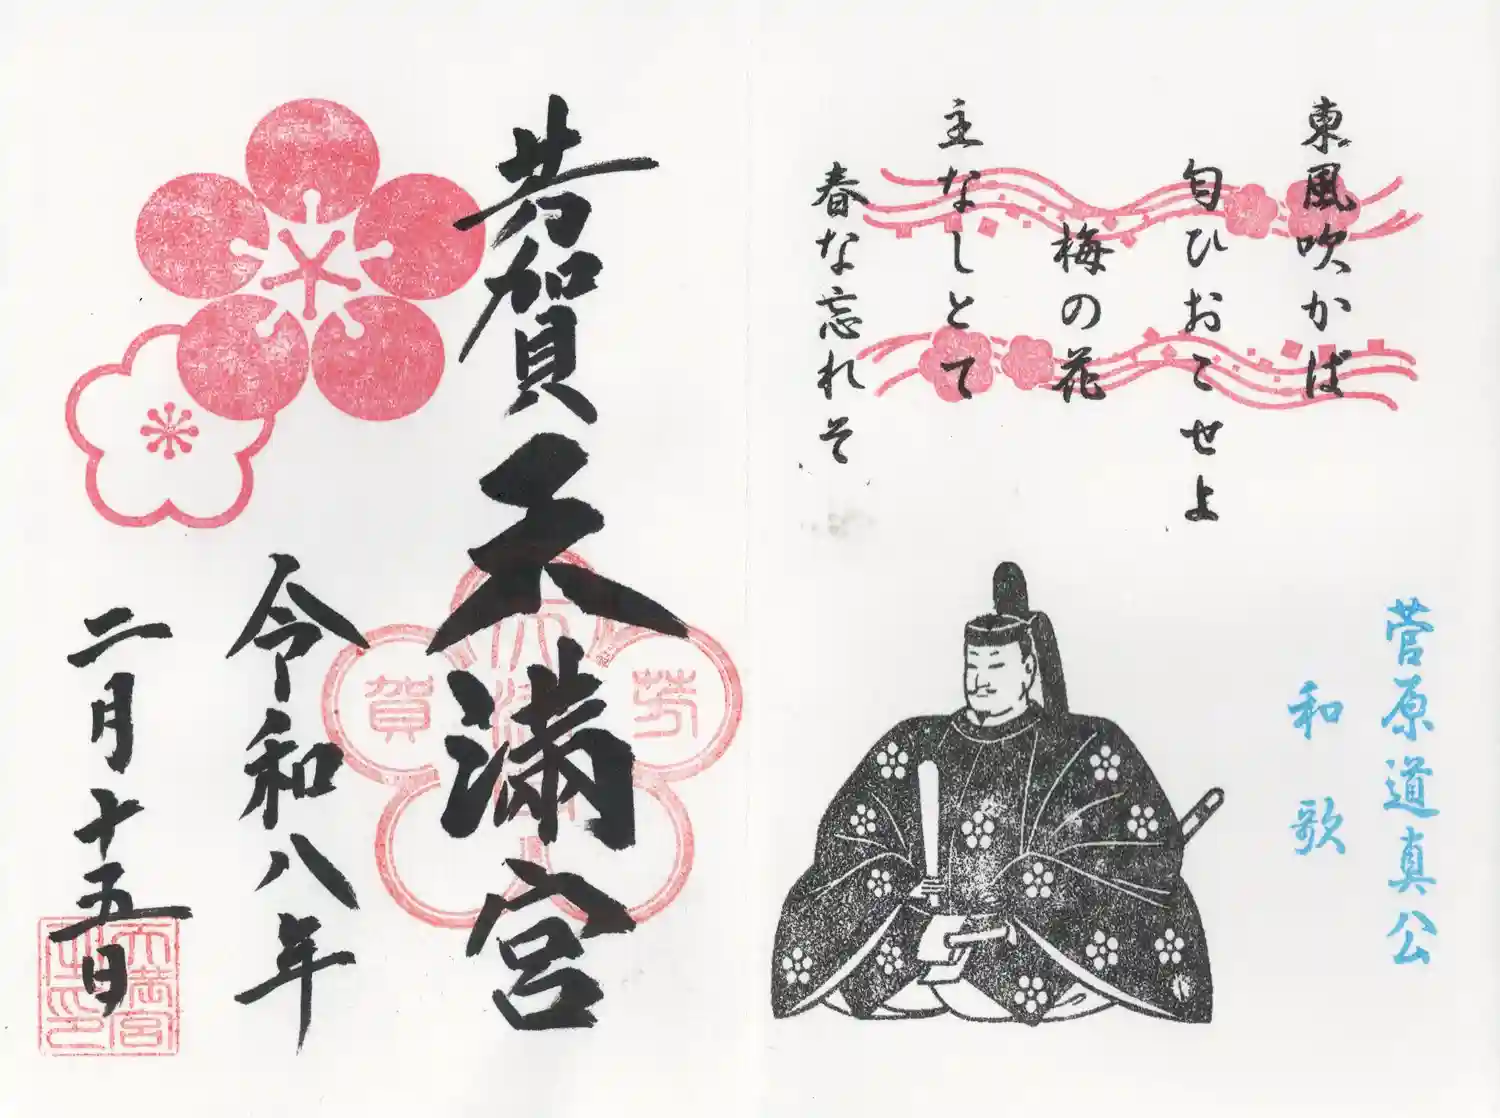 東風吹かば
匂ひおこせよ
梅の花
主なしとて
春な忘れそ
菅原道真公
和歌
芳賀天満宮
令和八年
二月十五日
芳
賀
天満宮